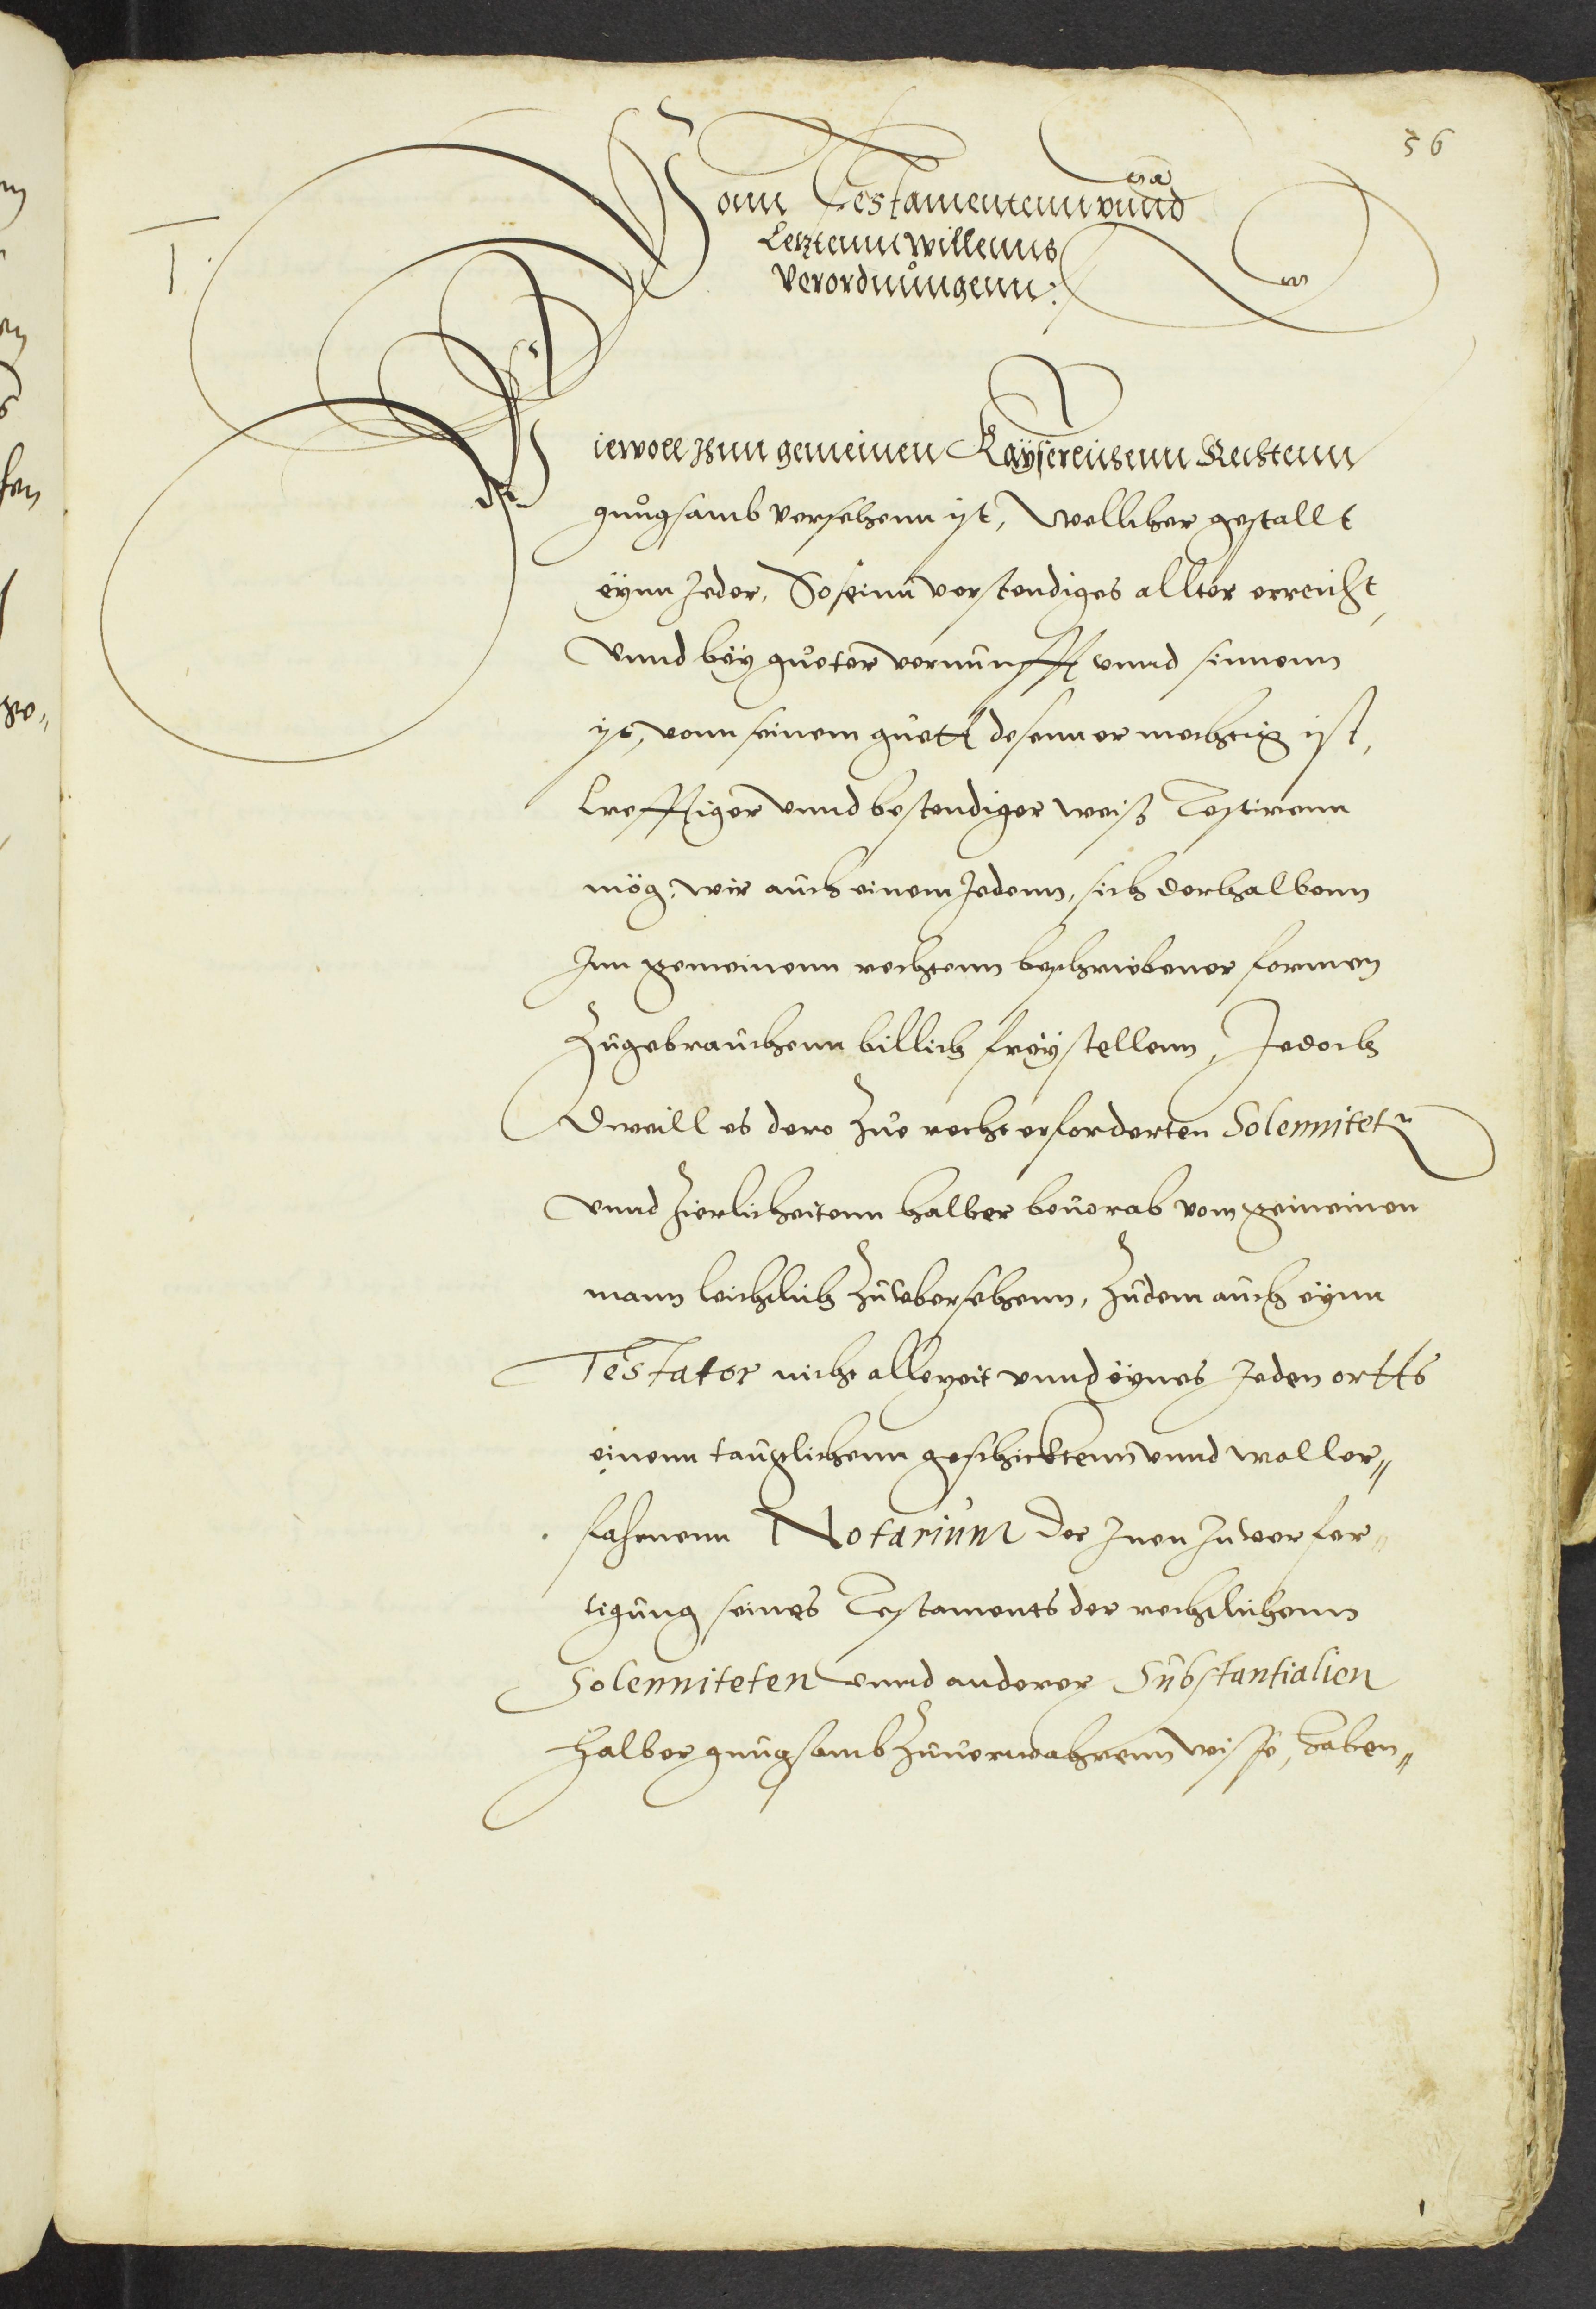 56
I.
Vonn Testamentenn vnnd
Letztenn willenns
Verordnungenn:
Wiewoll Inn gemeinen Kayserlichenn Rechtenn
gnugsamb versehenn ist, wellicher gestallt
eynn Jeder, So seinn verstendiges allter erreicht,
vnnd bey gueter vernunfft vnnd sinnenn
ist, vonn seinem guett desenn er mechtig ist,
kreffftiger vnnd bestendiger weiß Testirenn
mög, wir auch einem Jedenn, sich derhalbenn
Inn gemeinenn rechtenn beschriebener formen
Zugebrauchenn billich frey stellenn, Jedoch
Dweill es dero Zue recht erforderten Solennitetn
vnnd Zierlicheitenn halber beuorab vom gemeinen
mann leichtlich Zuubersehenn, Zudem auch eynn
Testator nicht allezeit vnnd eynes Jeden ortts
einenn tauglichenn geschicktenn vnnd woller„
fahrnenn Notarium der Inen Zu verfer„
tigung seines Testaments der rechtlichenn
Solenniteten vnnd anderer Substantialien
halber gnugsamb Zuuerwahrenn wisse, haben„